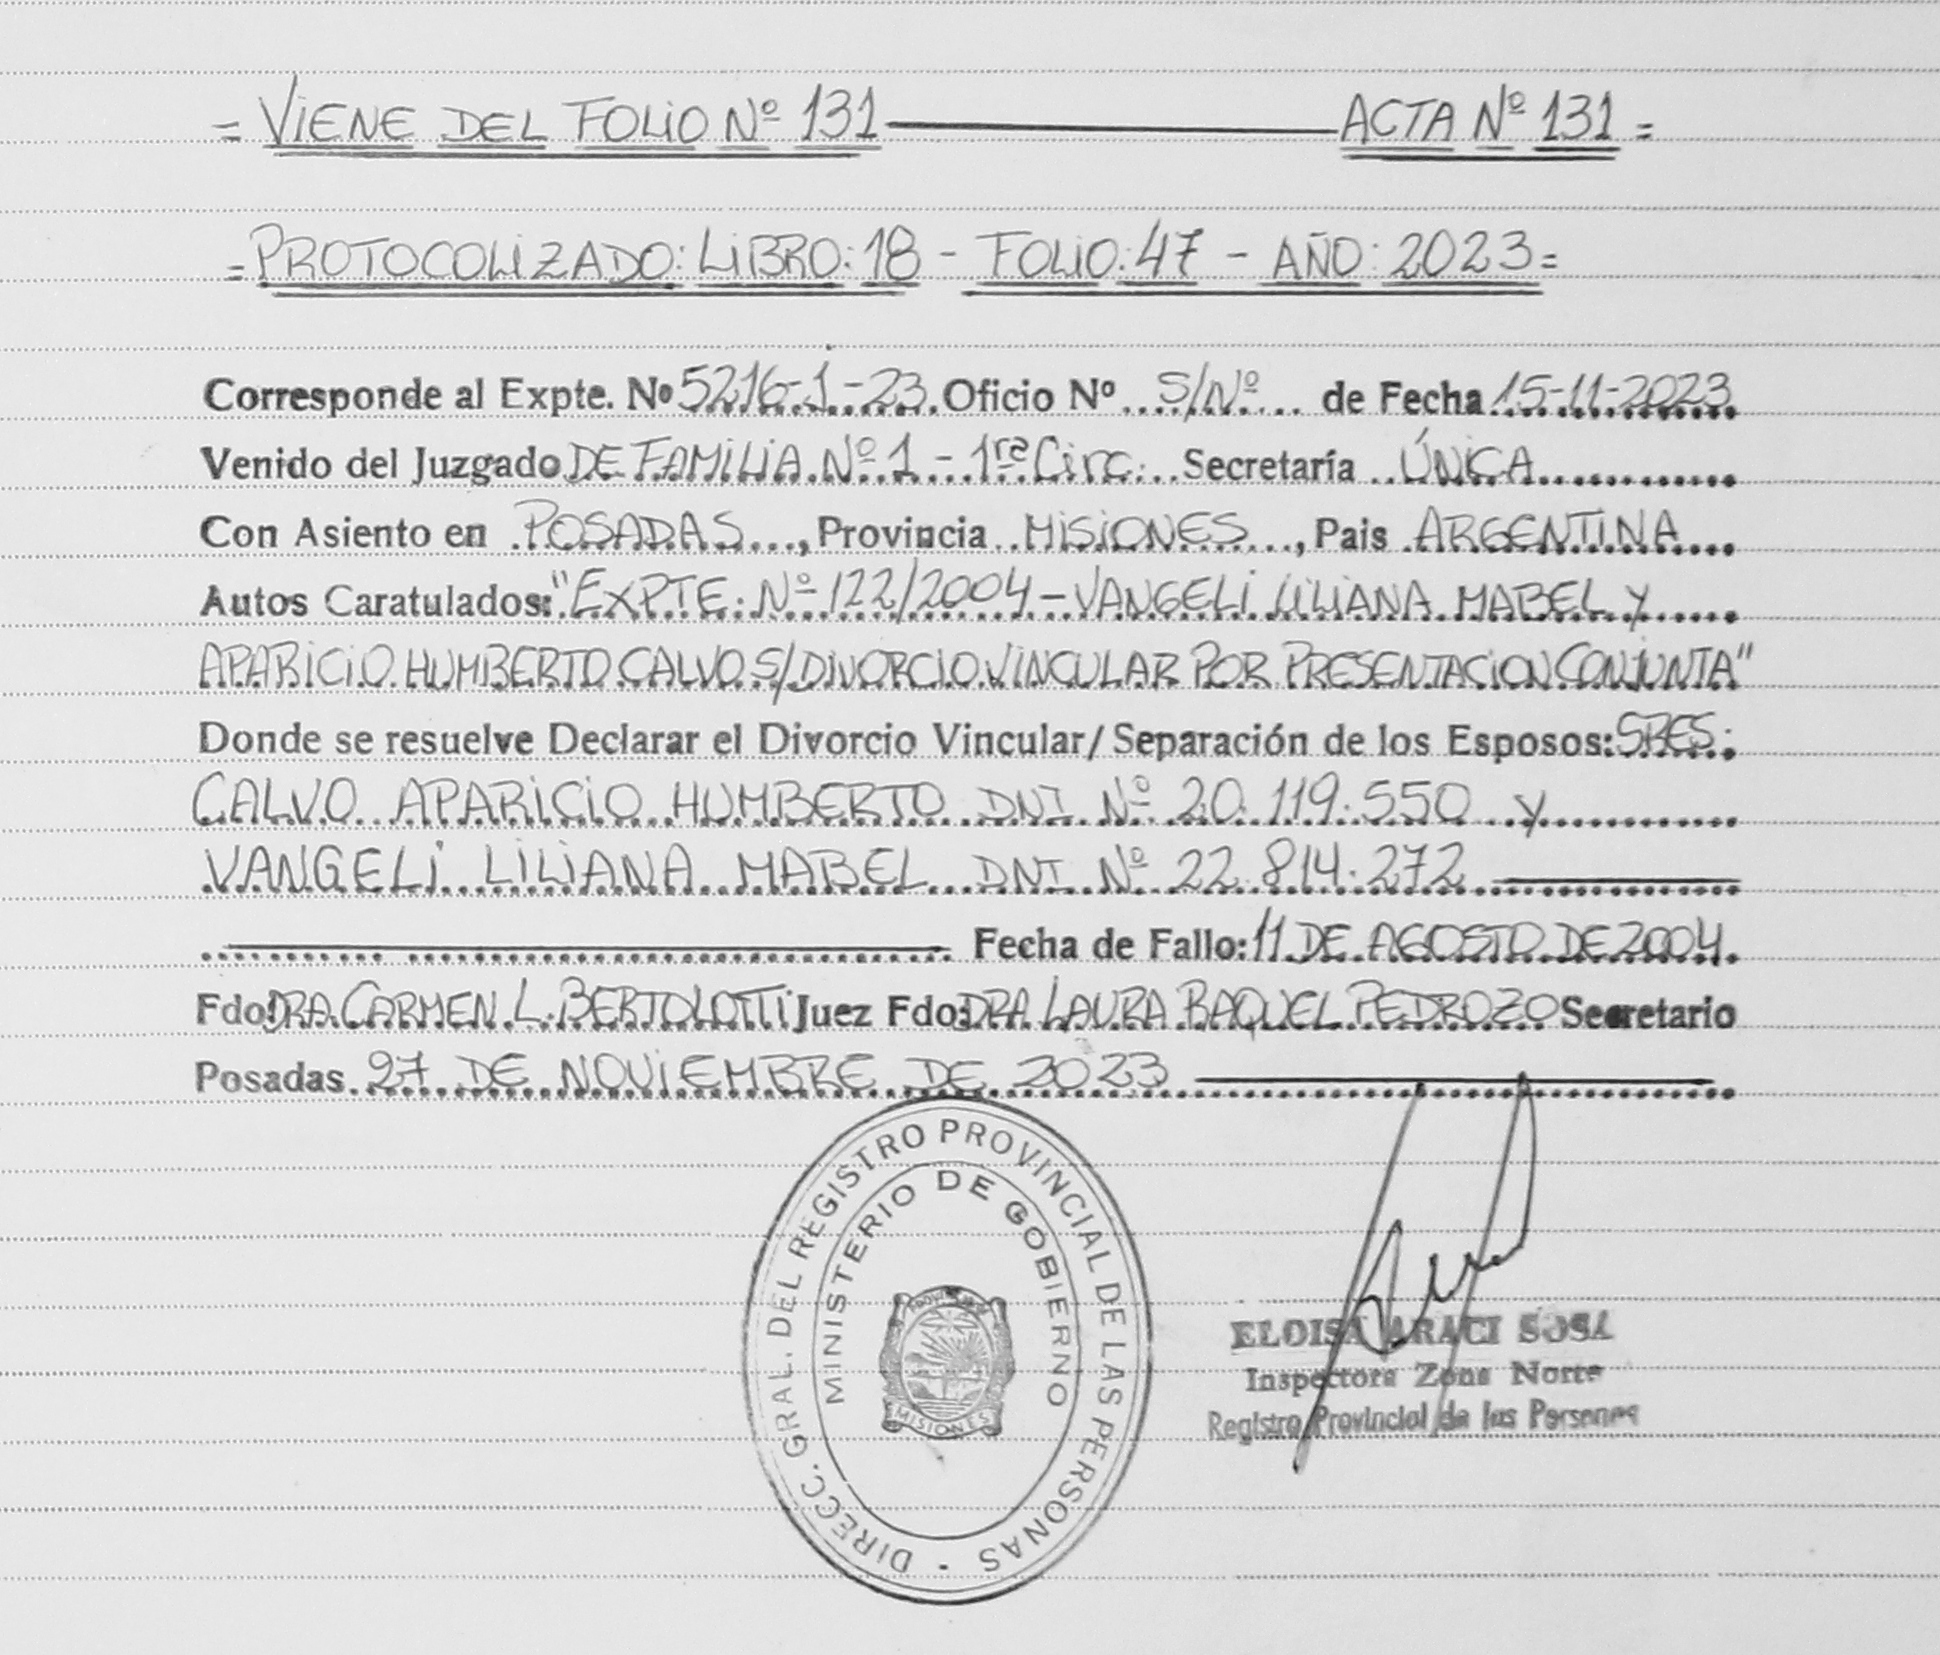 = VIENE DEL FOLIO Nº 131 ——— ACTA Nº 131 =
= PROTOCOLIZADO: LIBRO: 18 - FOLIO: 47 - AÑO: 2023 =
Corresponde al Expte. Nº 5216-1-23. Oficio Nº S/Nº de Fecha 15-11-2023
Venido del Juzgado DE FAMILIA Nº 1 - 1ra Circ. Secretaría ÚNICA
Con Asiento en POSADAS, Provincia MISIONES, Pais ARGENTINA
Autos Caratulados: "EXPTE. Nº 122/2004 - VANGELI LILIANA MABEL Y
APARICIO HUMBERTO CALVO S/ DIVORCIO VINCULAR POR PRESENTACION CONJUNTA"
Donde se resuelve Declarar el Divorcio Vincular/ Separación de los Esposos: SRES.
CALVO APARICIO HUMBERTO DNI Nº 20.119.550 y
VANGELI LILIANA MABEL DNI Nº 22.814.272
Fecha de Fallo: 11 DE AGOSTO DE 2004.
Fdo: DRA. CARMEN L. BERTOLOTTI Juez Fdo: DRA LAURA RAQUEL PEDROZO Secretario
Posadas 27 DE NOVIEMBRE DE 2023
DIRECC. GRAL. DEL REGISTRO PROVINCIAL DE LAS PERSONAS -
MINISTERIO DE GOBIERNO
MISIONES
ELOISA ARACI SOSA
Inspectora Zona Norte
Registro Provincial de las Personas